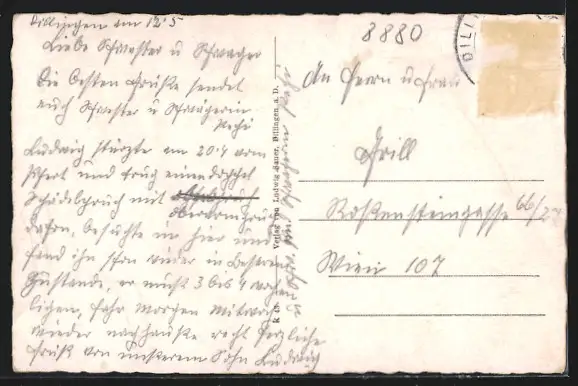 Dillingen am 12.5
Liebe Schwester u Schwager
Die besten Grüße sendet
euch Schwester u Schwägerin
Resi
Ludwig stürzte am 20.4 vom
Pferd und trug einen doppel
Schädelbruch mit
Oberarmbruch
davon, besuchte ihn hier und
fand ihn schon wieder in besserem
Zustande, er muß 3 bis 4 wochen
liegen, fahr Morgen Mittwoch
wieder nachhause recht herzliche
Grüß von unserem Sohn Ludwig
u Schw. und Schwägerin Resi
Verlag von Ludwig Sauer, Dillingen a. D.
8880
DILLI
An Herrn u Frau
Grill
Rokensteingasse 66/27
Wien 107